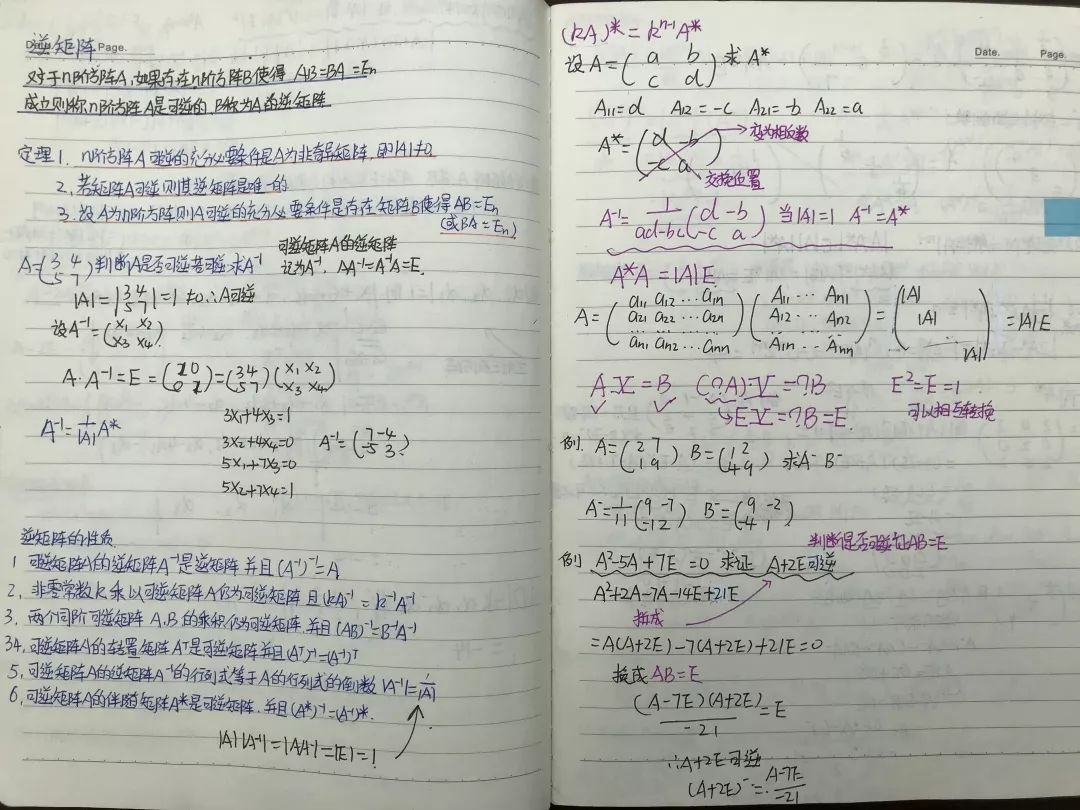 逆矩阵 Page.
对于n阶方阵A,如果存在n阶方阵B使得 AB=BA=En
成立则称n阶方阵A是可逆的,B称为A的逆矩阵
定理1. n阶方阵A可逆的充分必要条件是A为非奇异矩阵,即|A|≠0.
2. 若矩阵A可逆则其逆矩阵是唯一的
3. 设A为n阶方阵则A可逆的充分必要条件是存在矩阵B使得AB=En
(或BA=En)
可逆矩阵A的逆矩阵
记为A⁻¹, AA⁻¹=A⁻¹A=E.
A=(3 4
5 7)判断A是否可逆若可逆求A⁻¹
|A|=|3 4
5 7|=1≠0∴A可逆
设A⁻¹=(x₁ x₂
x₃ x₄)
A·A⁻¹=E=(1 0
0 1)=(3 4
5 7)(x₁ x₂
x₃ x₄)
3x₁+4x₃=1
A⁻¹=1/|A| A*
3x₂+4x₄=0 A⁻¹=(7 -4
-5 3)
5x₁+7x₃=0
5x₂+7x₄=1
逆矩阵的性质
1 可逆矩阵A的逆矩阵A⁻¹是逆矩阵并且(A⁻¹)⁻¹=A
2, 非零常数k乘以可逆矩阵A仍为可逆矩阵且(kA)⁻¹=k⁻¹A⁻¹
3, 两个同阶可逆矩阵A,B的乘积仍为可逆矩阵,并且(AB)⁻¹=B⁻¹A⁻¹
34, 可逆矩阵A的转置矩阵Aᵀ是可逆矩阵并且(Aᵀ)⁻¹=(A⁻¹)ᵀ
5, 可逆矩阵A的逆矩阵A⁻¹的行列式等于A的行列式的倒数|A⁻¹|=1/|A|
6, 可逆矩阵A的伴随矩阵A*是可逆矩阵,并且(A*)⁻¹=(A⁻¹)*.
|A||A⁻¹|=|AA⁻¹|=|E|=1
Date. Page.
(kA)*=kⁿ⁻¹A*
设A=(a b
c d)求A*
A₁₁=d A₁₂=-c A₂₁=-b A₂₂=a
A*=(d -b
-c a)
变为相反数
交换位置
A⁻¹=1/(ad-bc)(d -b
-c a) 当|A|=1 A⁻¹=A*
A*A=|A|E.
A=(a₁₁ a₁₂ … a₁n
a₂₁ a₂₂ … a₂n
… … …
an₁ an₂ … ann)(A₁₁ … An₁
A₁₂ … An₂
… …
A₁n … Ann)=(|A|
|A|
…
|A|)=|A|E
A·X=B (?A)=X=?B E²=E=1
EX=?B=E. 可以相互转换
例. A=(2 7
1 9) B=(1 2
4 9) 求A⁻ B⁻
A⁻=1/11(9 -7
-1 2) B⁻=(9 -2
-4 1)
判断是否可逆证AB=E
例 A²-5A+7E=0 求证 A+2E可逆
A²+2A-7A-14E+21E
拆成
=A(A+2E)-7(A+2E)+21E=0
换成AB=E
(A-7E)(A+2E)/-21=E
∴A+2E可逆
(A+2E)⁻=A-7E/-21